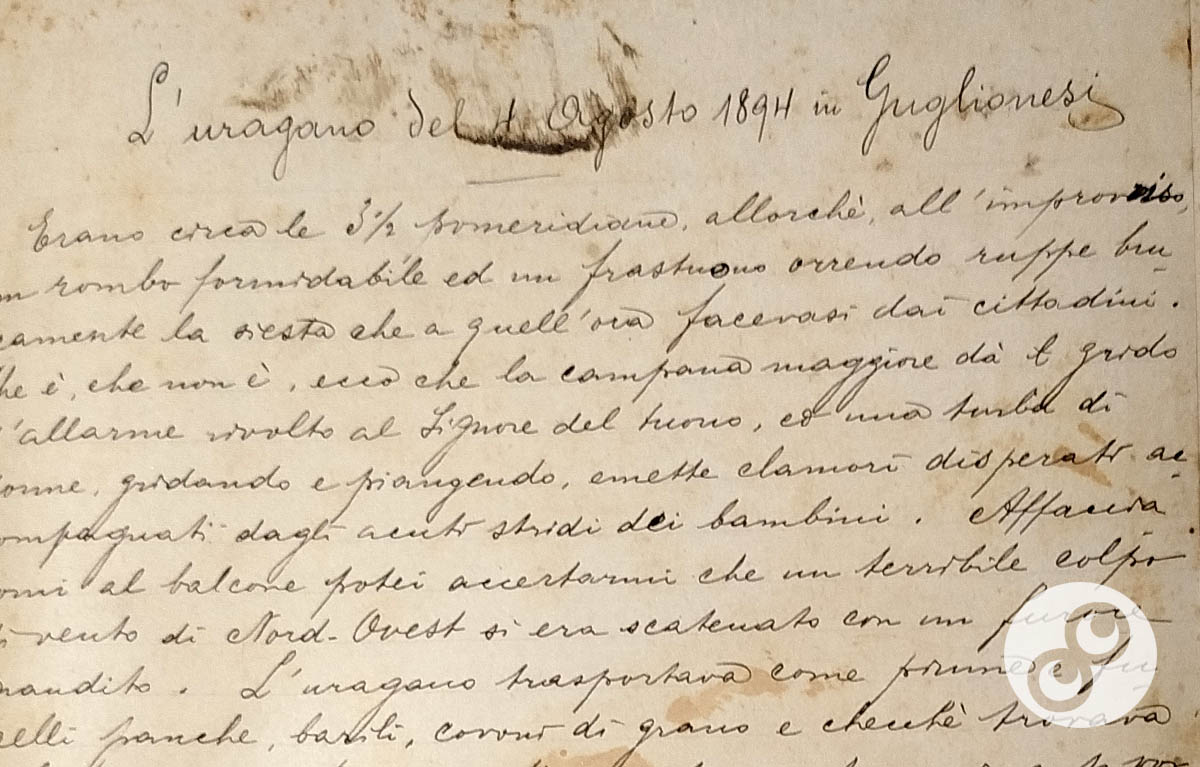 L'uragano del 4 Agosto 1894 in Guglionesi
Erano circa le 3½ pomeridiane, allorchè, all'improvviso,
un rombo formidabile ed un frastuono orrendo ruppe bru-
camente la siesta che a quell'ora facevasi dai cittadini.
he è, che non è, ecco che la campana maggiore dà il grido
d'allarme rivolto al Signore del tuono, ed una turba di
onne, gridando e piangendo, emette clamori disperati ac-
ompagnati dagli acuti stridi dei bambini. Affaccia-
omi al balcone potei accertarmi che un terribile colpo
di vento di Nord-Ovest si era scatenato con un furore
naudito. L'uragano trasportava come piume e fu-
celli panche, barili, covoni di grano e checchè trovava